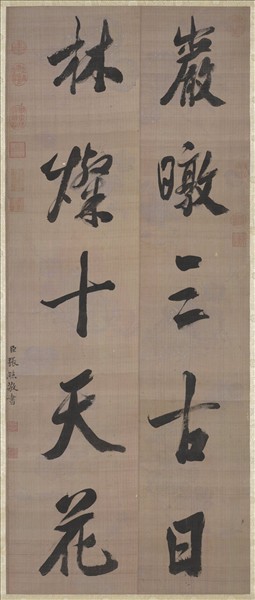 巖暾三古日
林燦十天花
臣張照敬書